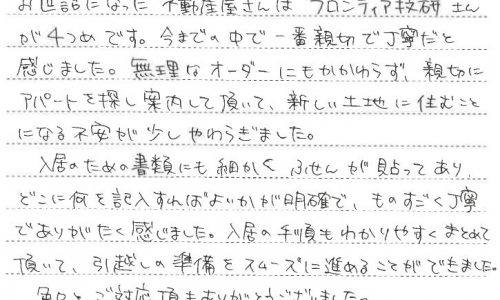 お世話になった 不動産屋さんは フロンティア技研 さん
が4つめです。今までの中で一番親切で丁寧だと
感じました。無理なオーダーにもかかわらず、親切に
アパートを探し案内して頂いて、新しい土地に住むこと
になる不安が少しやわらぎました。
入居のための書類にも細かく ふせんが貼ってあり、
どこに何を記入すればよいかが明確で、ものすごく丁寧
でありがたく感じました。入居の手順もわかりやすくまとめて
頂いて、引越しの準備をスムーズに進めることができました。
色々とご対応頂きありがとうございました。